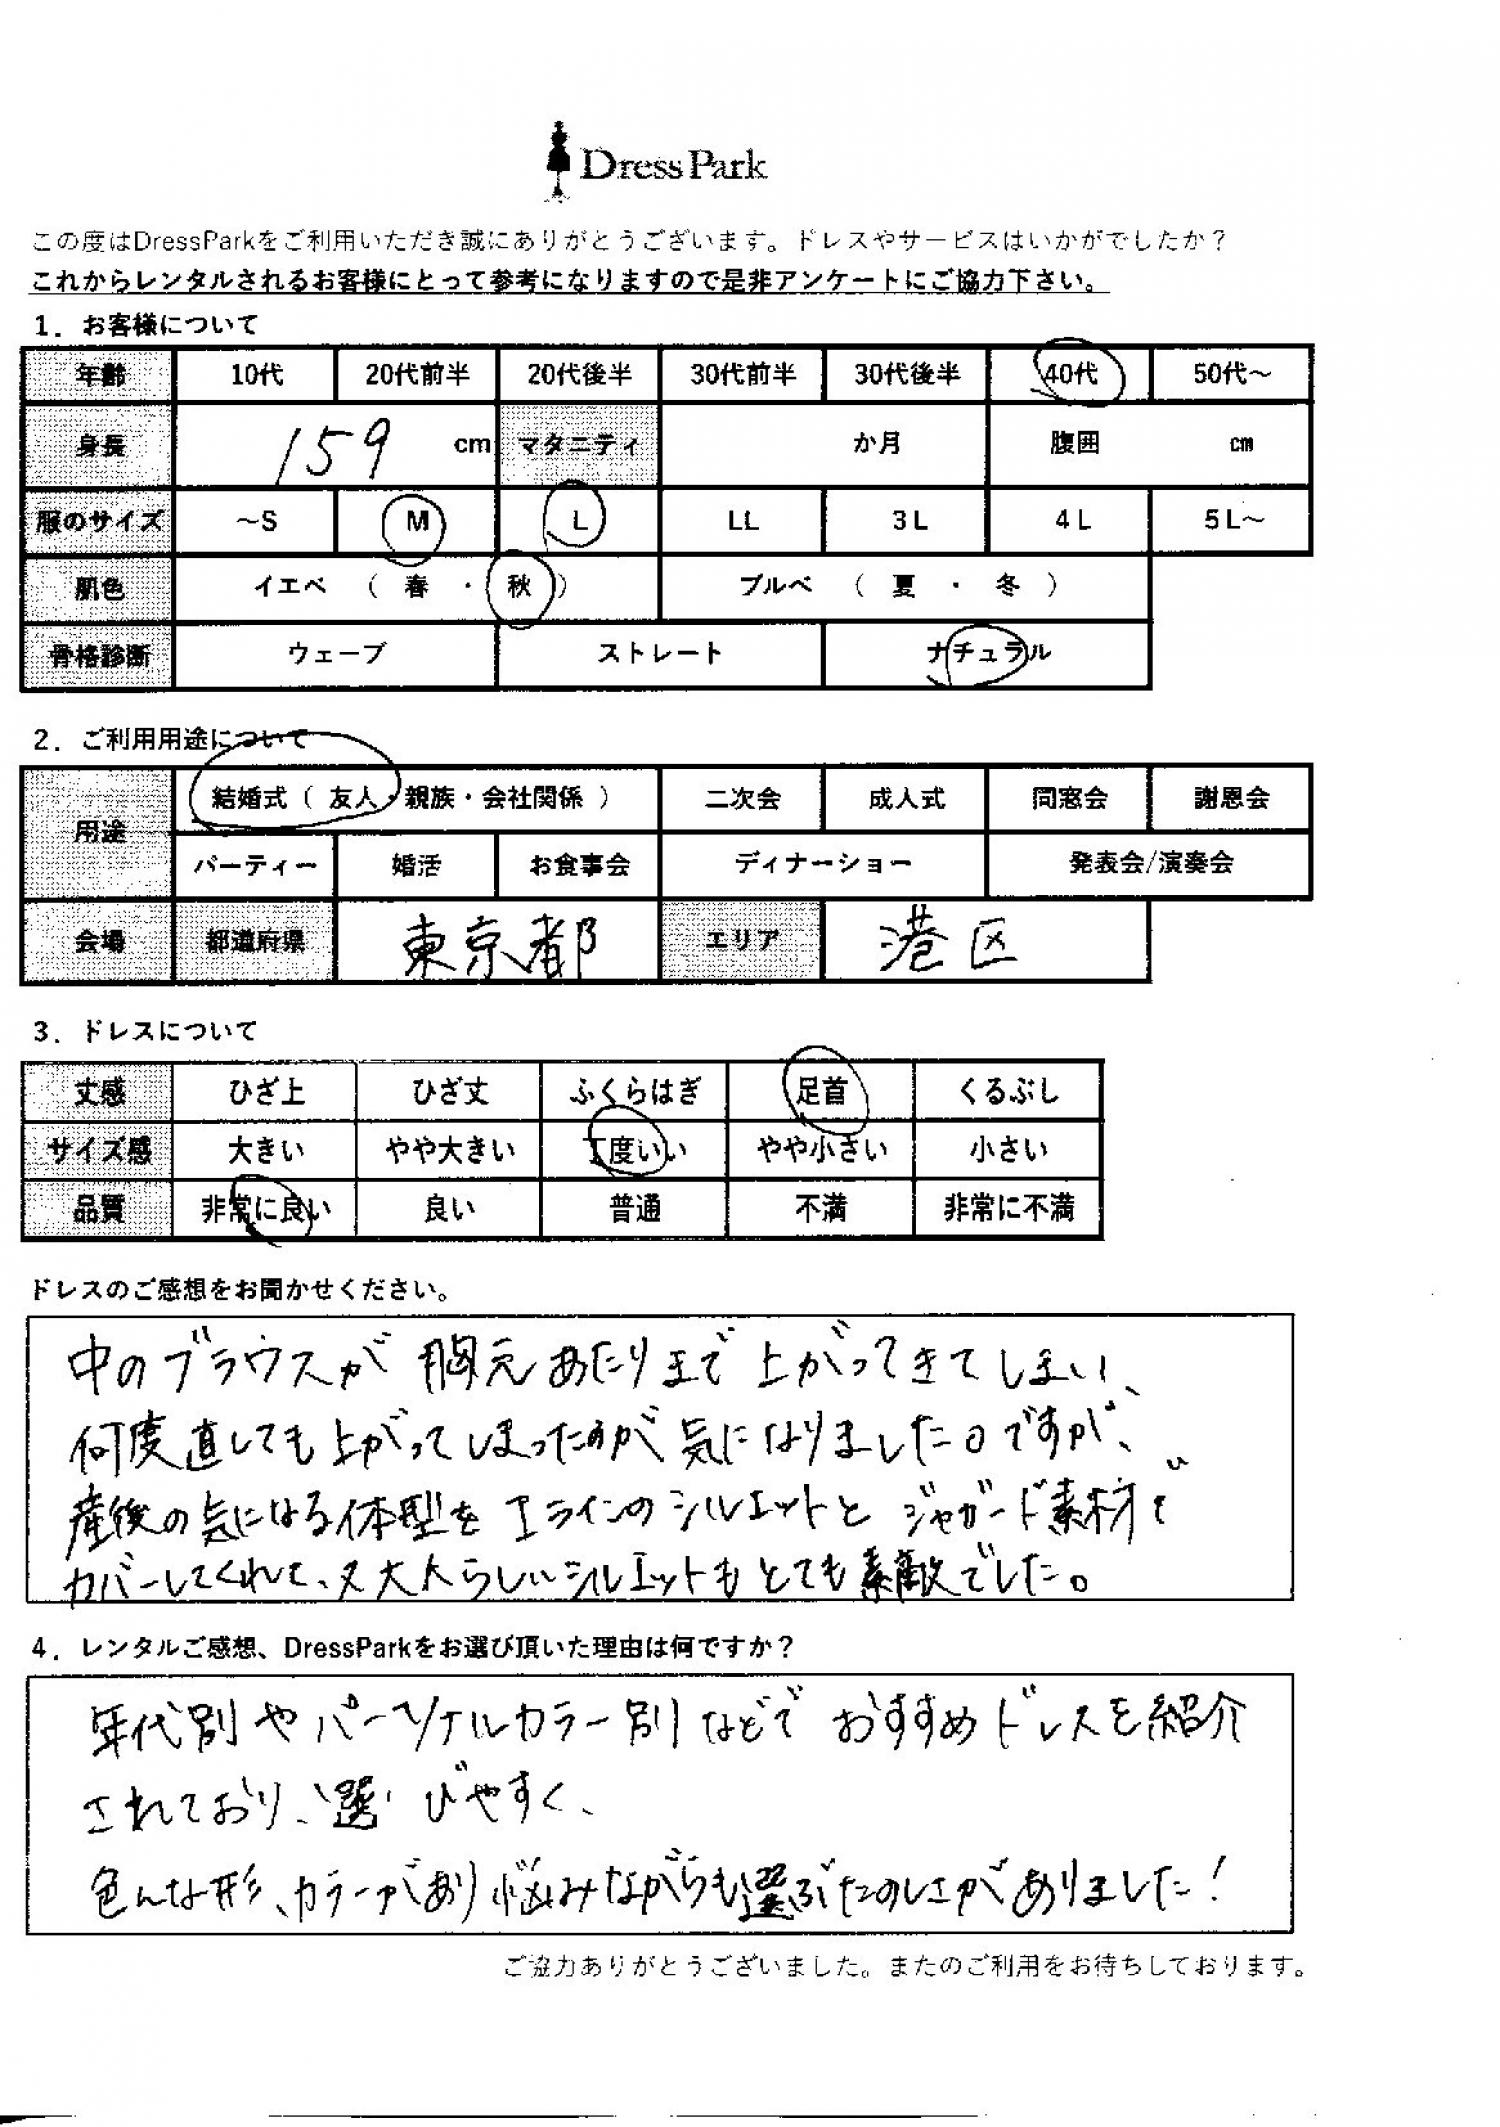 Dress Park
この度はDressParkをご利用いただき誠にありがとうございます。ドレスやサービスはいかがでしたか？
これからレンタルされるお客様にとって参考になりますので是非アンケートにご協力下さい。
1．お客様について
年齢 10代 20代前半 20代後半 30代前半 30代後半 40代 50代～
身長 159 cm マタニティ か月 腹囲 cm
服のサイズ ～S M L LL 3L 4L 5L～
肌色 イエベ （ 春 ・ 秋 ） ブルベ （ 夏 ・ 冬 ）
骨格診断 ウェーブ ストレート ナチュラル
2．ご利用用途について
用途 結婚式（ 友人・親族・会社関係 ） 二次会 成人式 同窓会 謝恩会
パーティー 婚活 お食事会 ディナーショー 発表会/演奏会
会場 都道府県 東京都 エリア 港区
3．ドレスについて
丈感 ひざ上 ひざ丈 ふくらはぎ 足首 くるぶし
サイズ感 大きい やや大きい 丁度いい やや小さい 小さい
品質 非常に良い 良い 普通 不満 非常に不満
ドレスのご感想をお聞かせください。
中のブラウスが胸元あたりまで上がってきてしまい、
何度直しても上がってしまったのが気になりました。ですが、
産後の気になる体型をIラインのシルエットとジャガード素材で
カバーしてくれて、又大人らしいシルエットもとても素敵でした。
4．レンタルご感想、DressParkをお選び頂いた理由は何ですか？
年代別やパーソナルカラー別などでおすすめドレスを紹介
されており、選びやすく、
色んな形、カラーがあり悩みながらも選ぶたのしさがありました！
ご協力ありがとうございました。またのご利用をお待ちしております。